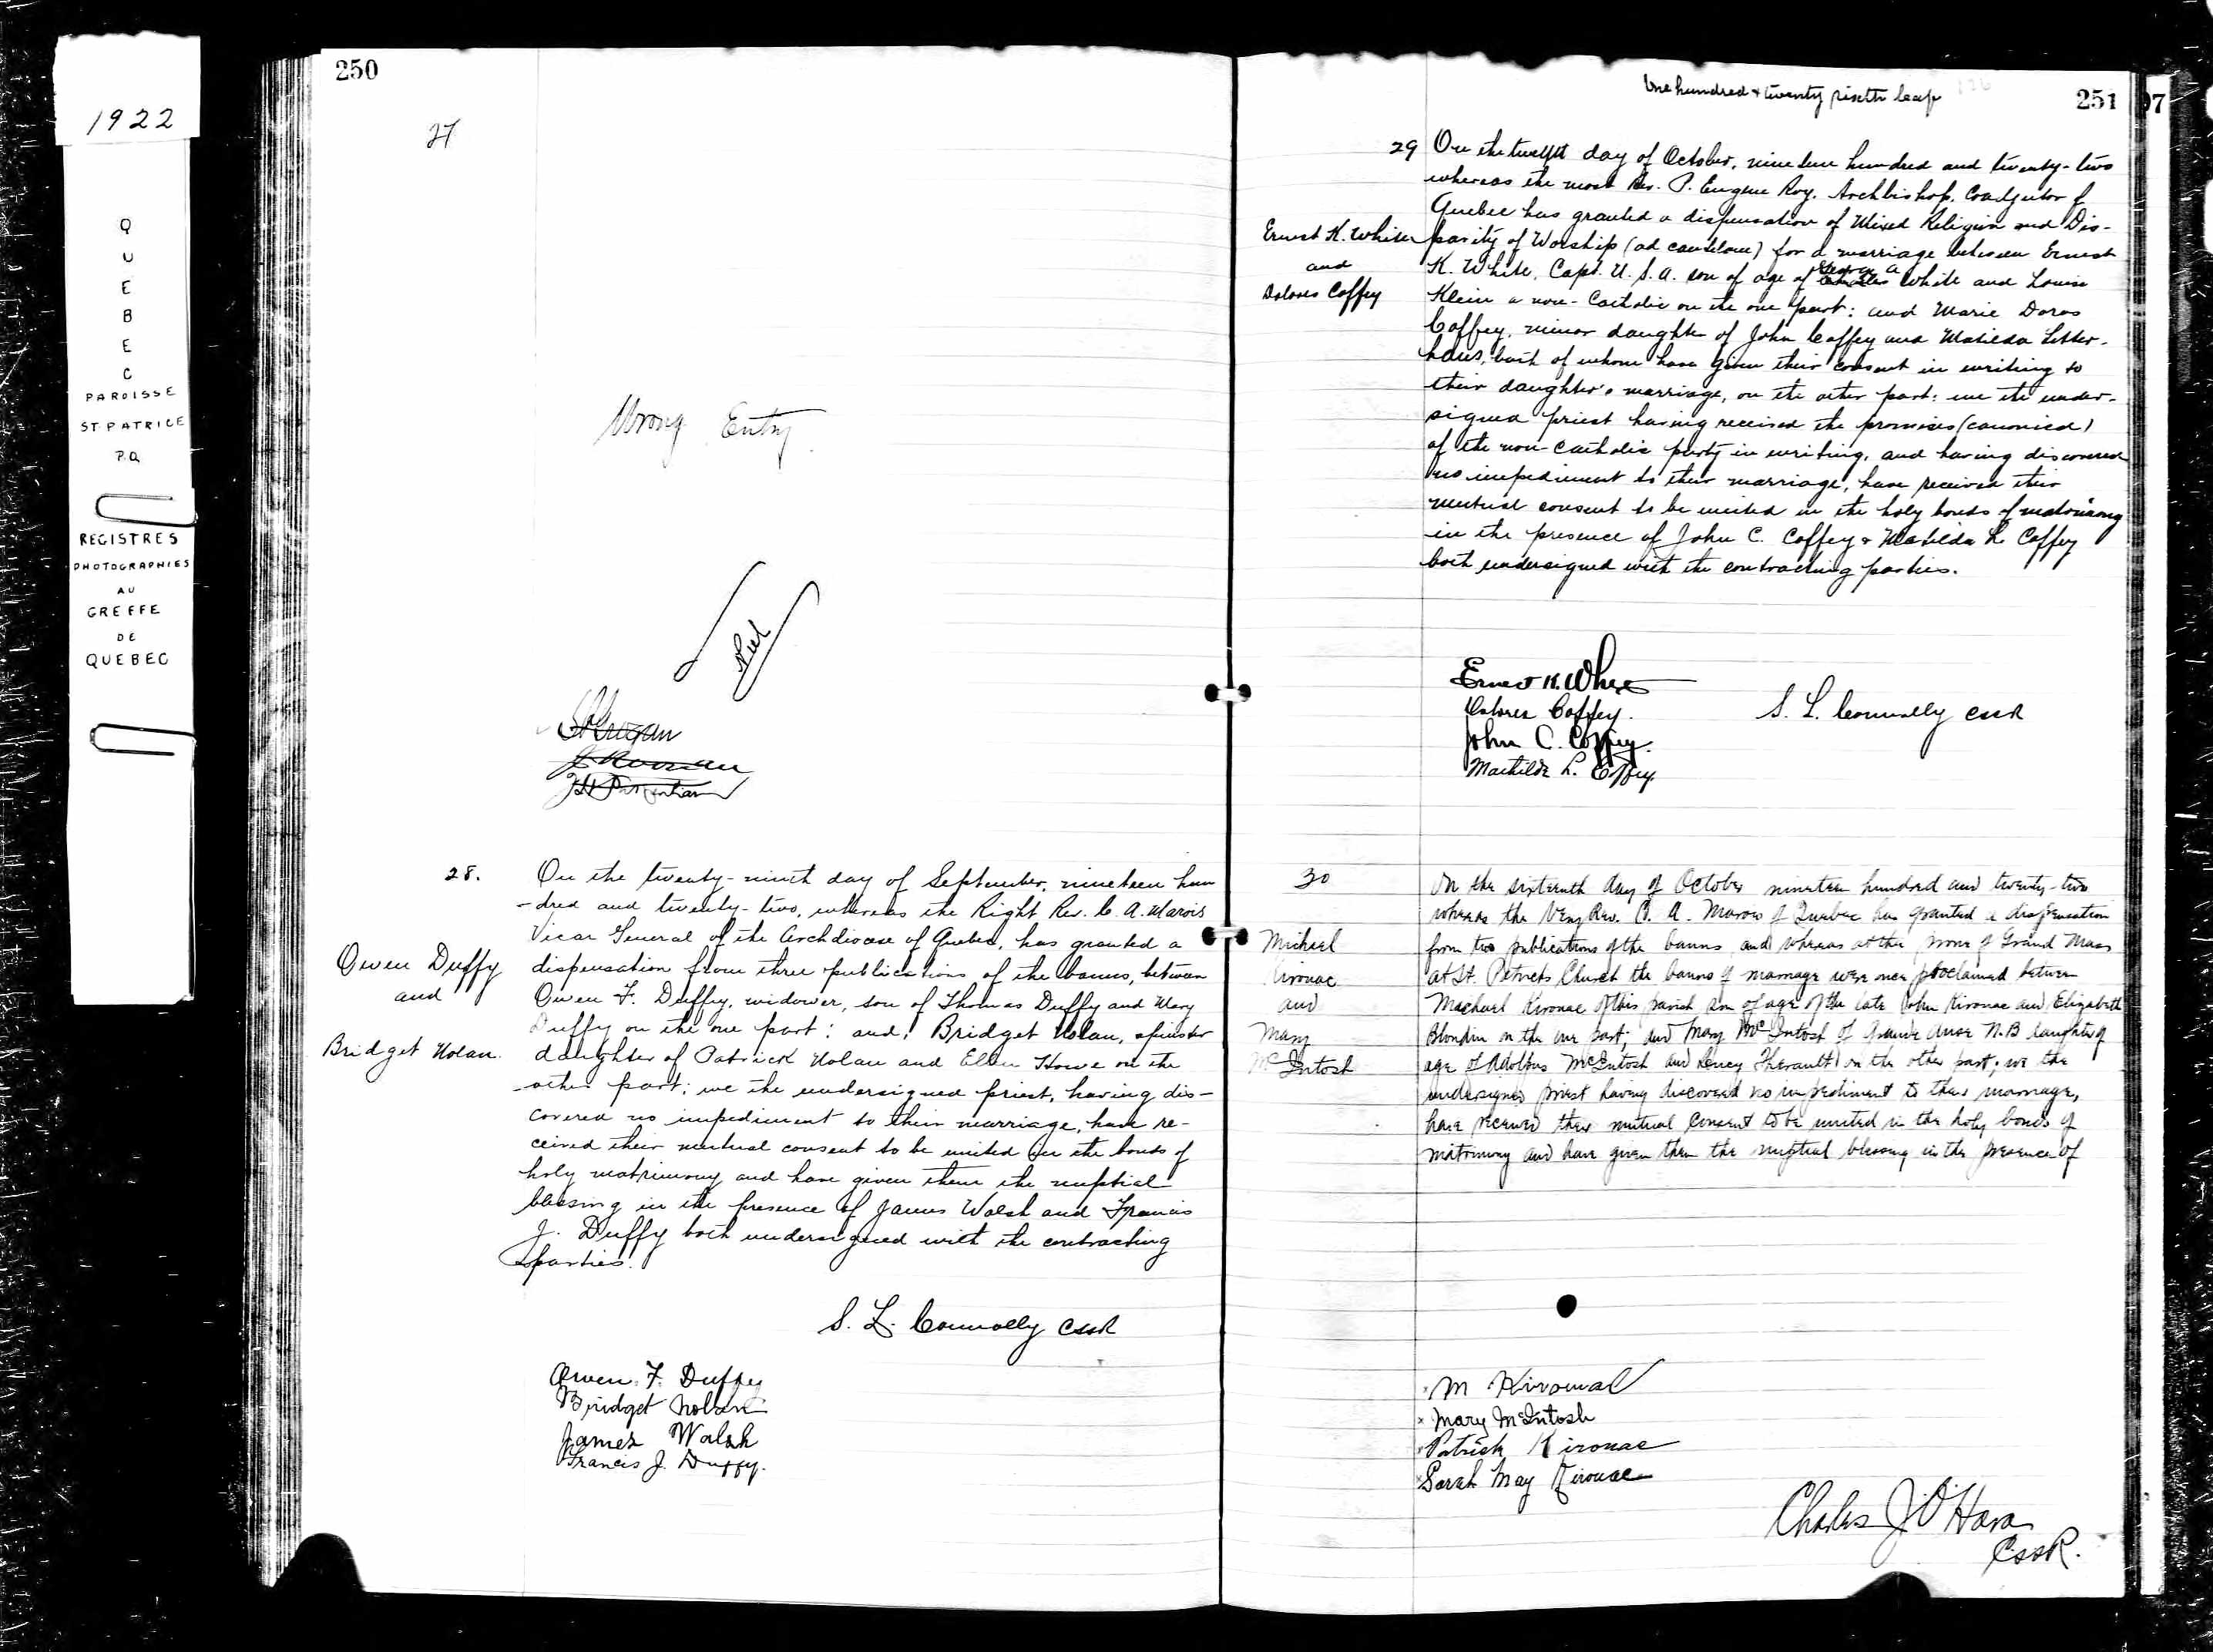 1922
Q
U
E
B
E
C
PAROISSE
ST. PATRICE
P.Q.
REGISTRES
PHOTOGRAPHIES
AU
GREFFE
DE
QUEBEC
250
27
Wrong Entry
28.
Owen Duffy
and
Bridget Nolan.
On the twenty-ninth day of September, nineteen hun
-dred and twenty-two, whereas the Right Rev. C. A. Marois
Vicar General of the Archdiocese of Quebec, has granted a
dispensation from three publications of the banns, between
Owen F. Duffy, widower, son of Thomas Duffy and Mary
Duffy on the one part: and: Bridget Nolan, spinster
daughter of Patrick Nolan and Ellen Howe on the
other part: we the undersigned priest, having dis-
covered no impediment to their marriage, have re-
ceived their mutual consent to be united in the bonds of
holy matrimony and have given them the nuptial
blessing in the presence of James Walsh and Francis
J. Duffy both undersigned with the contracting
parties.
S. L. Connolly CSSR
Owen F. Duffy
Bridget Nolan
James Walsh
Francis J. Duffy.
One hundred & twenty sixth leaf
251
97
29
Ernest K. White
and
Dolores Coffey
On the twelfth day of October, nineteen hundred and twenty-two
whereas the most Rev. P. Eugene Roy, Archbishop, Coadjutor of
Quebec has granted a dispensation of Mixed Religion and Dis-
parity of Worship (ad cautelam) for a marriage between Ernest
K. White, Capt. U.S.A. son of age of George A White and Louise
Klein a non-Catholic on the one part: and Marie Dores
Coffey, minor daughter of John Coffey and Matilda Letter-
haus, both of whom have given their consent in writing to
their daughter's marriage, on the other part: we the under-
signed priest having received the promises (canonical)
of the non-Catholic party in writing, and having discovered
no impediment to their marriage, have received their
mutual consent to be united in the holy bonds of matrimony
in the presence of John C. Coffey & Matilda L. Coffey
both undersigned with the contracting parties.
Ernest K. White
Dolores Coffey.
John C. Coffey.
Mathilda L. Coffey.
S. L. Connolly CSSR
30
Michael
Kirouac
and
Mary
McIntosh
On the sixteenth day of October nineteen hundred and twenty-two
whereas the Very Rev. C. A. Marois of Quebec has granted a dispensation
from two publications of the banns and whereas at the prone of Grand Mass
at St. Patricks Church the banns of marriage were once proclaimed between
Machael Kirouac of this parish son of age of the late John Kirouac and Elizabeth
Blondin on the one part; and Mary McIntosh of Grande Anse N.B daughter of
age of Adolphus McIntosh and Lucy Theriault on the other part; we the
undersigned priest having discovered no impediment to their marriage,
have received their mutual consent to be united in the holy bonds of
matrimony and have given them the nuptial blessing in the presence of
M Kirouac
x Mary McIntosh
x Patrick Kirouac
x Sarah May Kirouac
Charles J. O'Hara
CSSR.